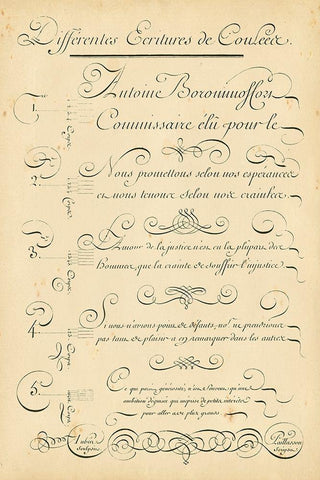 Différentes Ecritures de Coulée.
1.
Antoine
Commissaire élû pour le
2.
Nous promettons selon nos espérances
et nous tenons selon nos craintes.
3.
Amour de la justice n'est en la plûpart des
Hommes, que la crainte de souffrir l'injustice.
4.
Si nous n'avions point de défauts, nous ne prendrions
pas tant de plaisir à en remarquer dans les autres
5.
Ce qui paroît générosité, n'est souvent qu'une
ambition déguisée qui méprise de petits intérêts
pour aller à de plus grands.
Aubin
Sculpsit
Paillasson
Scripsit